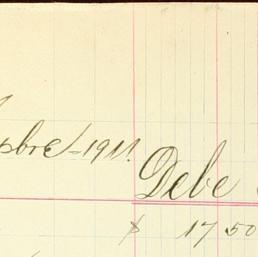 pbre/-1911.
Debe
$ 17 50